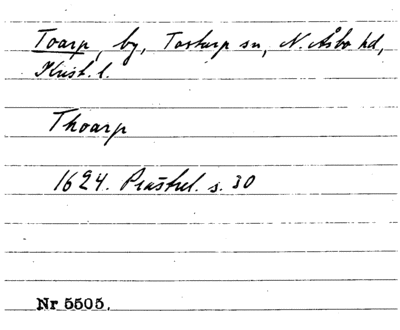 Toarp, by, Tostarp sn, N. Åsbo hd,
Krist. l.
Thoarp
1624. Prästrel. s. 30
Nr 5505.